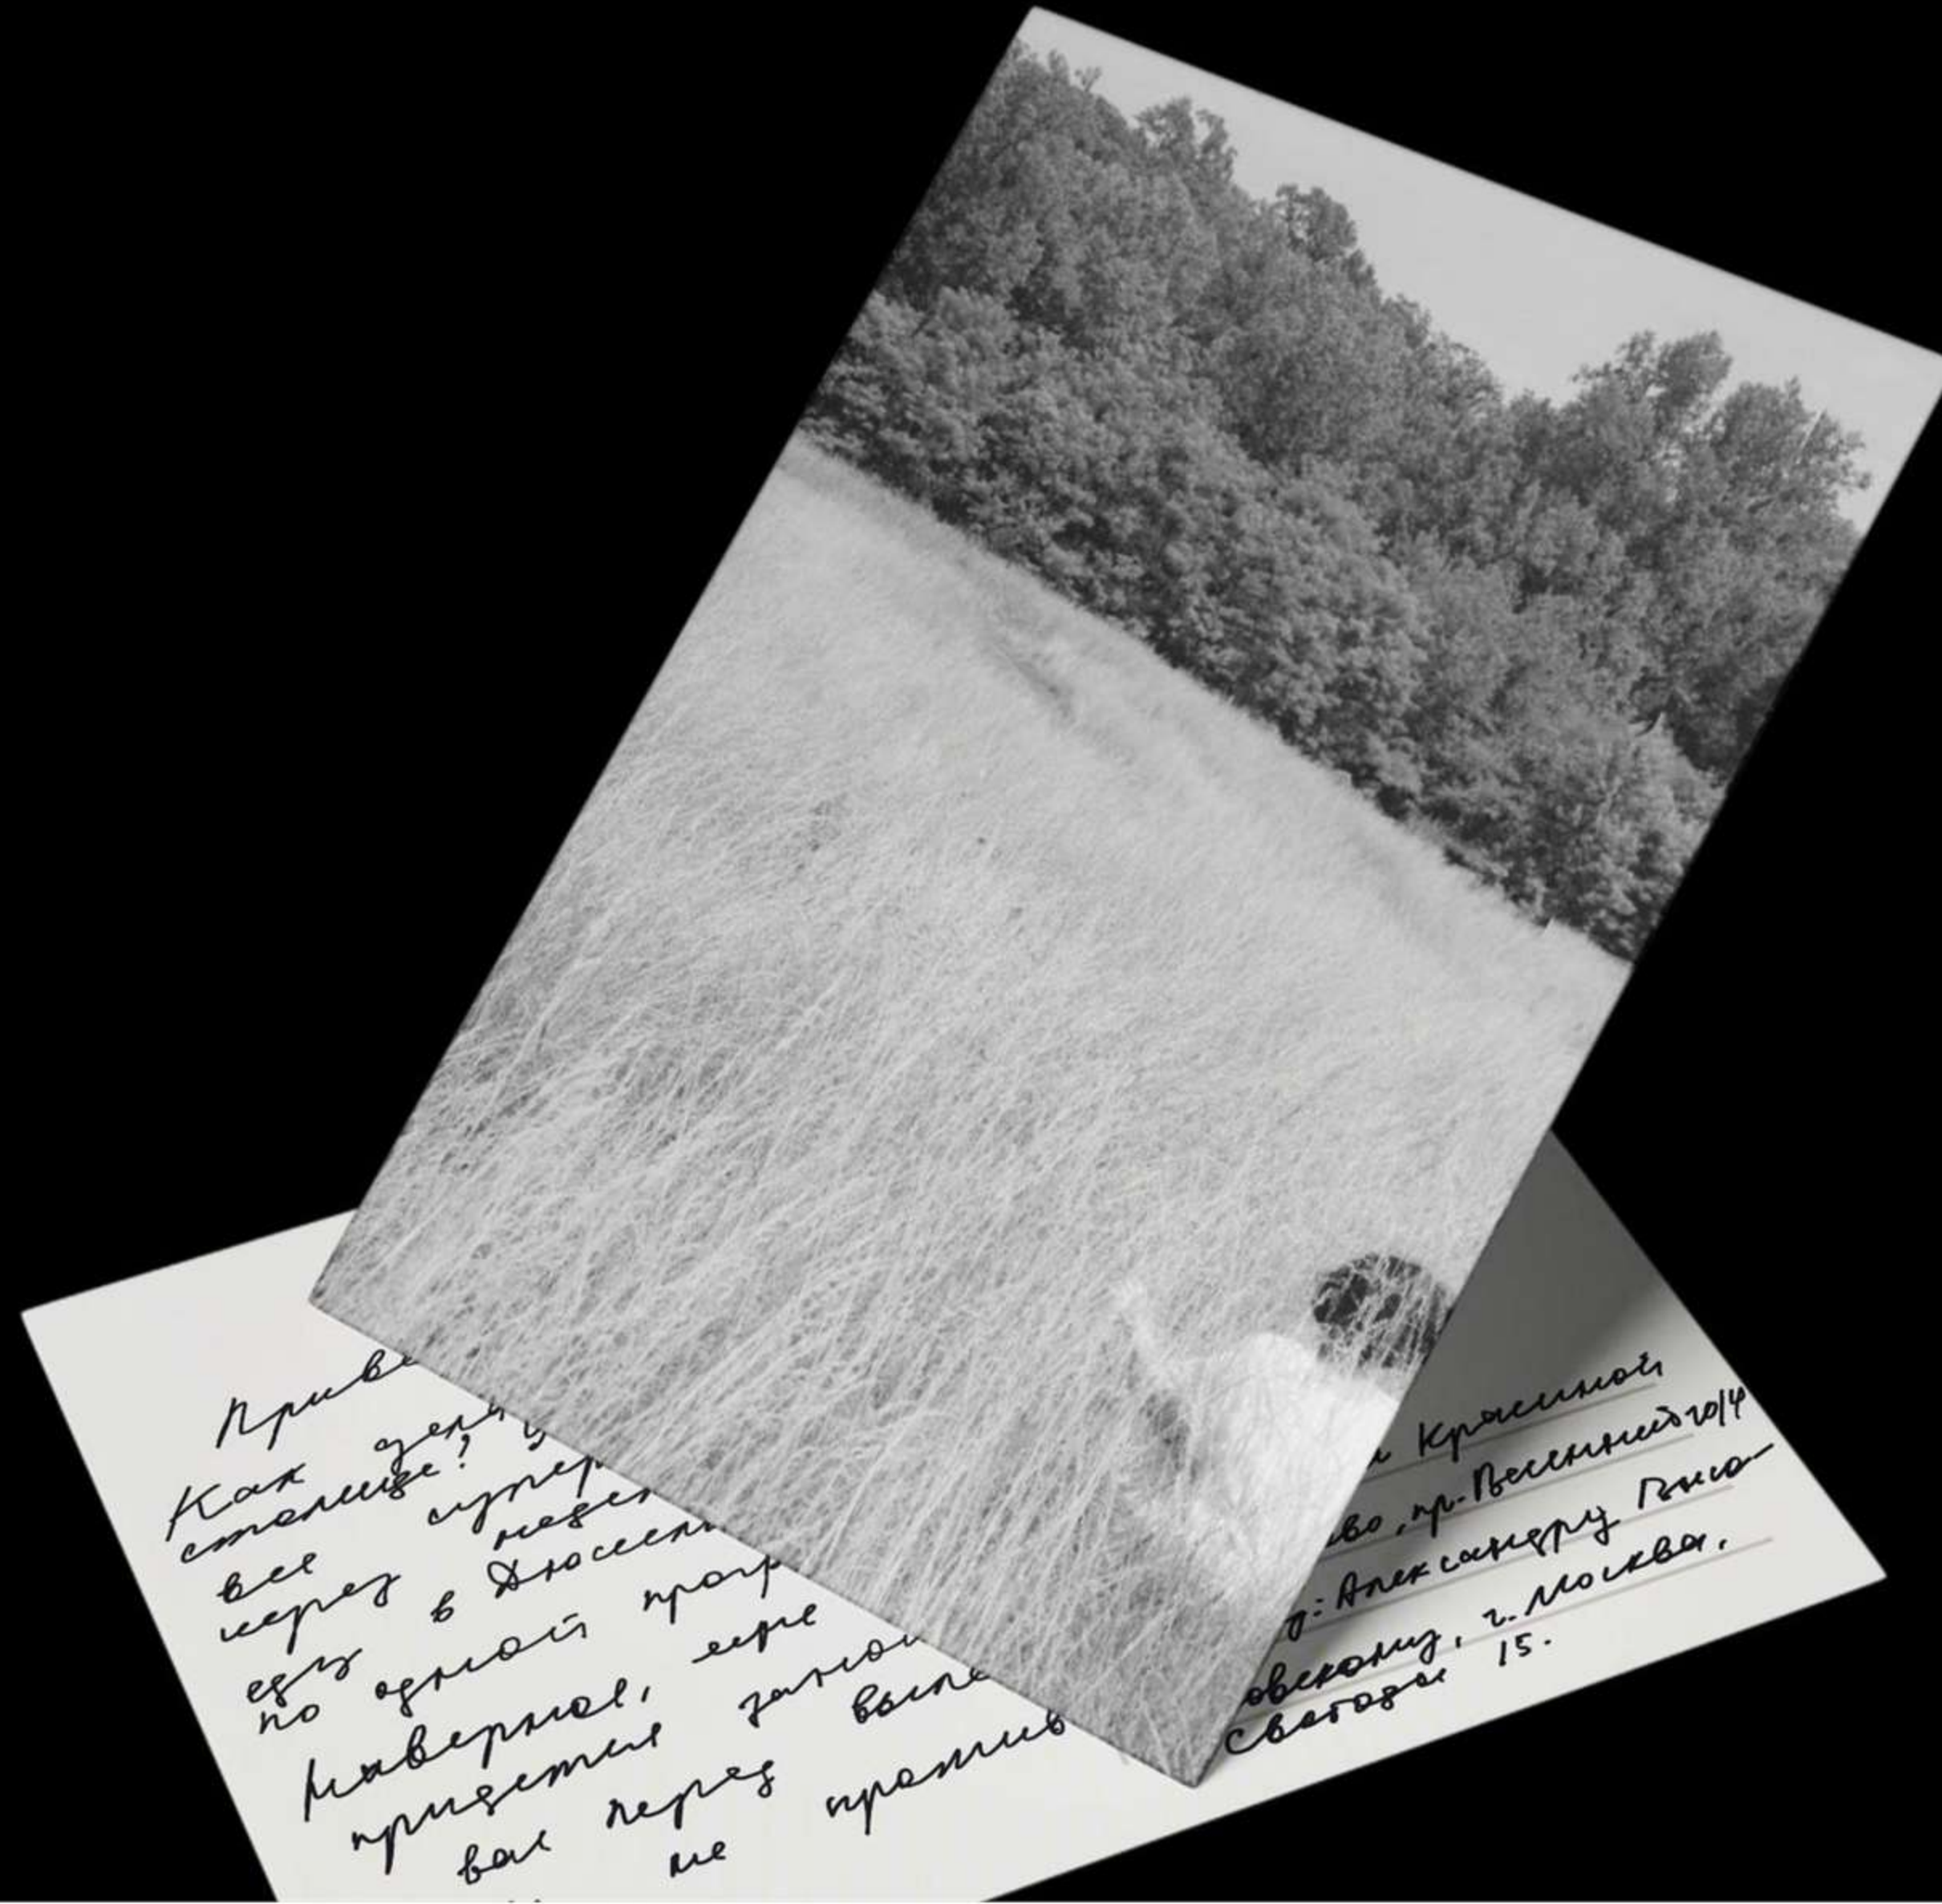 Приве
Как дела
столице? У
все супер
через недел
еду в Дюссель
по одной прогр
Наверное, мне
придется заноч
вас перед выле
не против
Красиной
во, пр. Весенний 20/4
у: Александру Висло-
овскому, г. Москва,
Свободы 15.